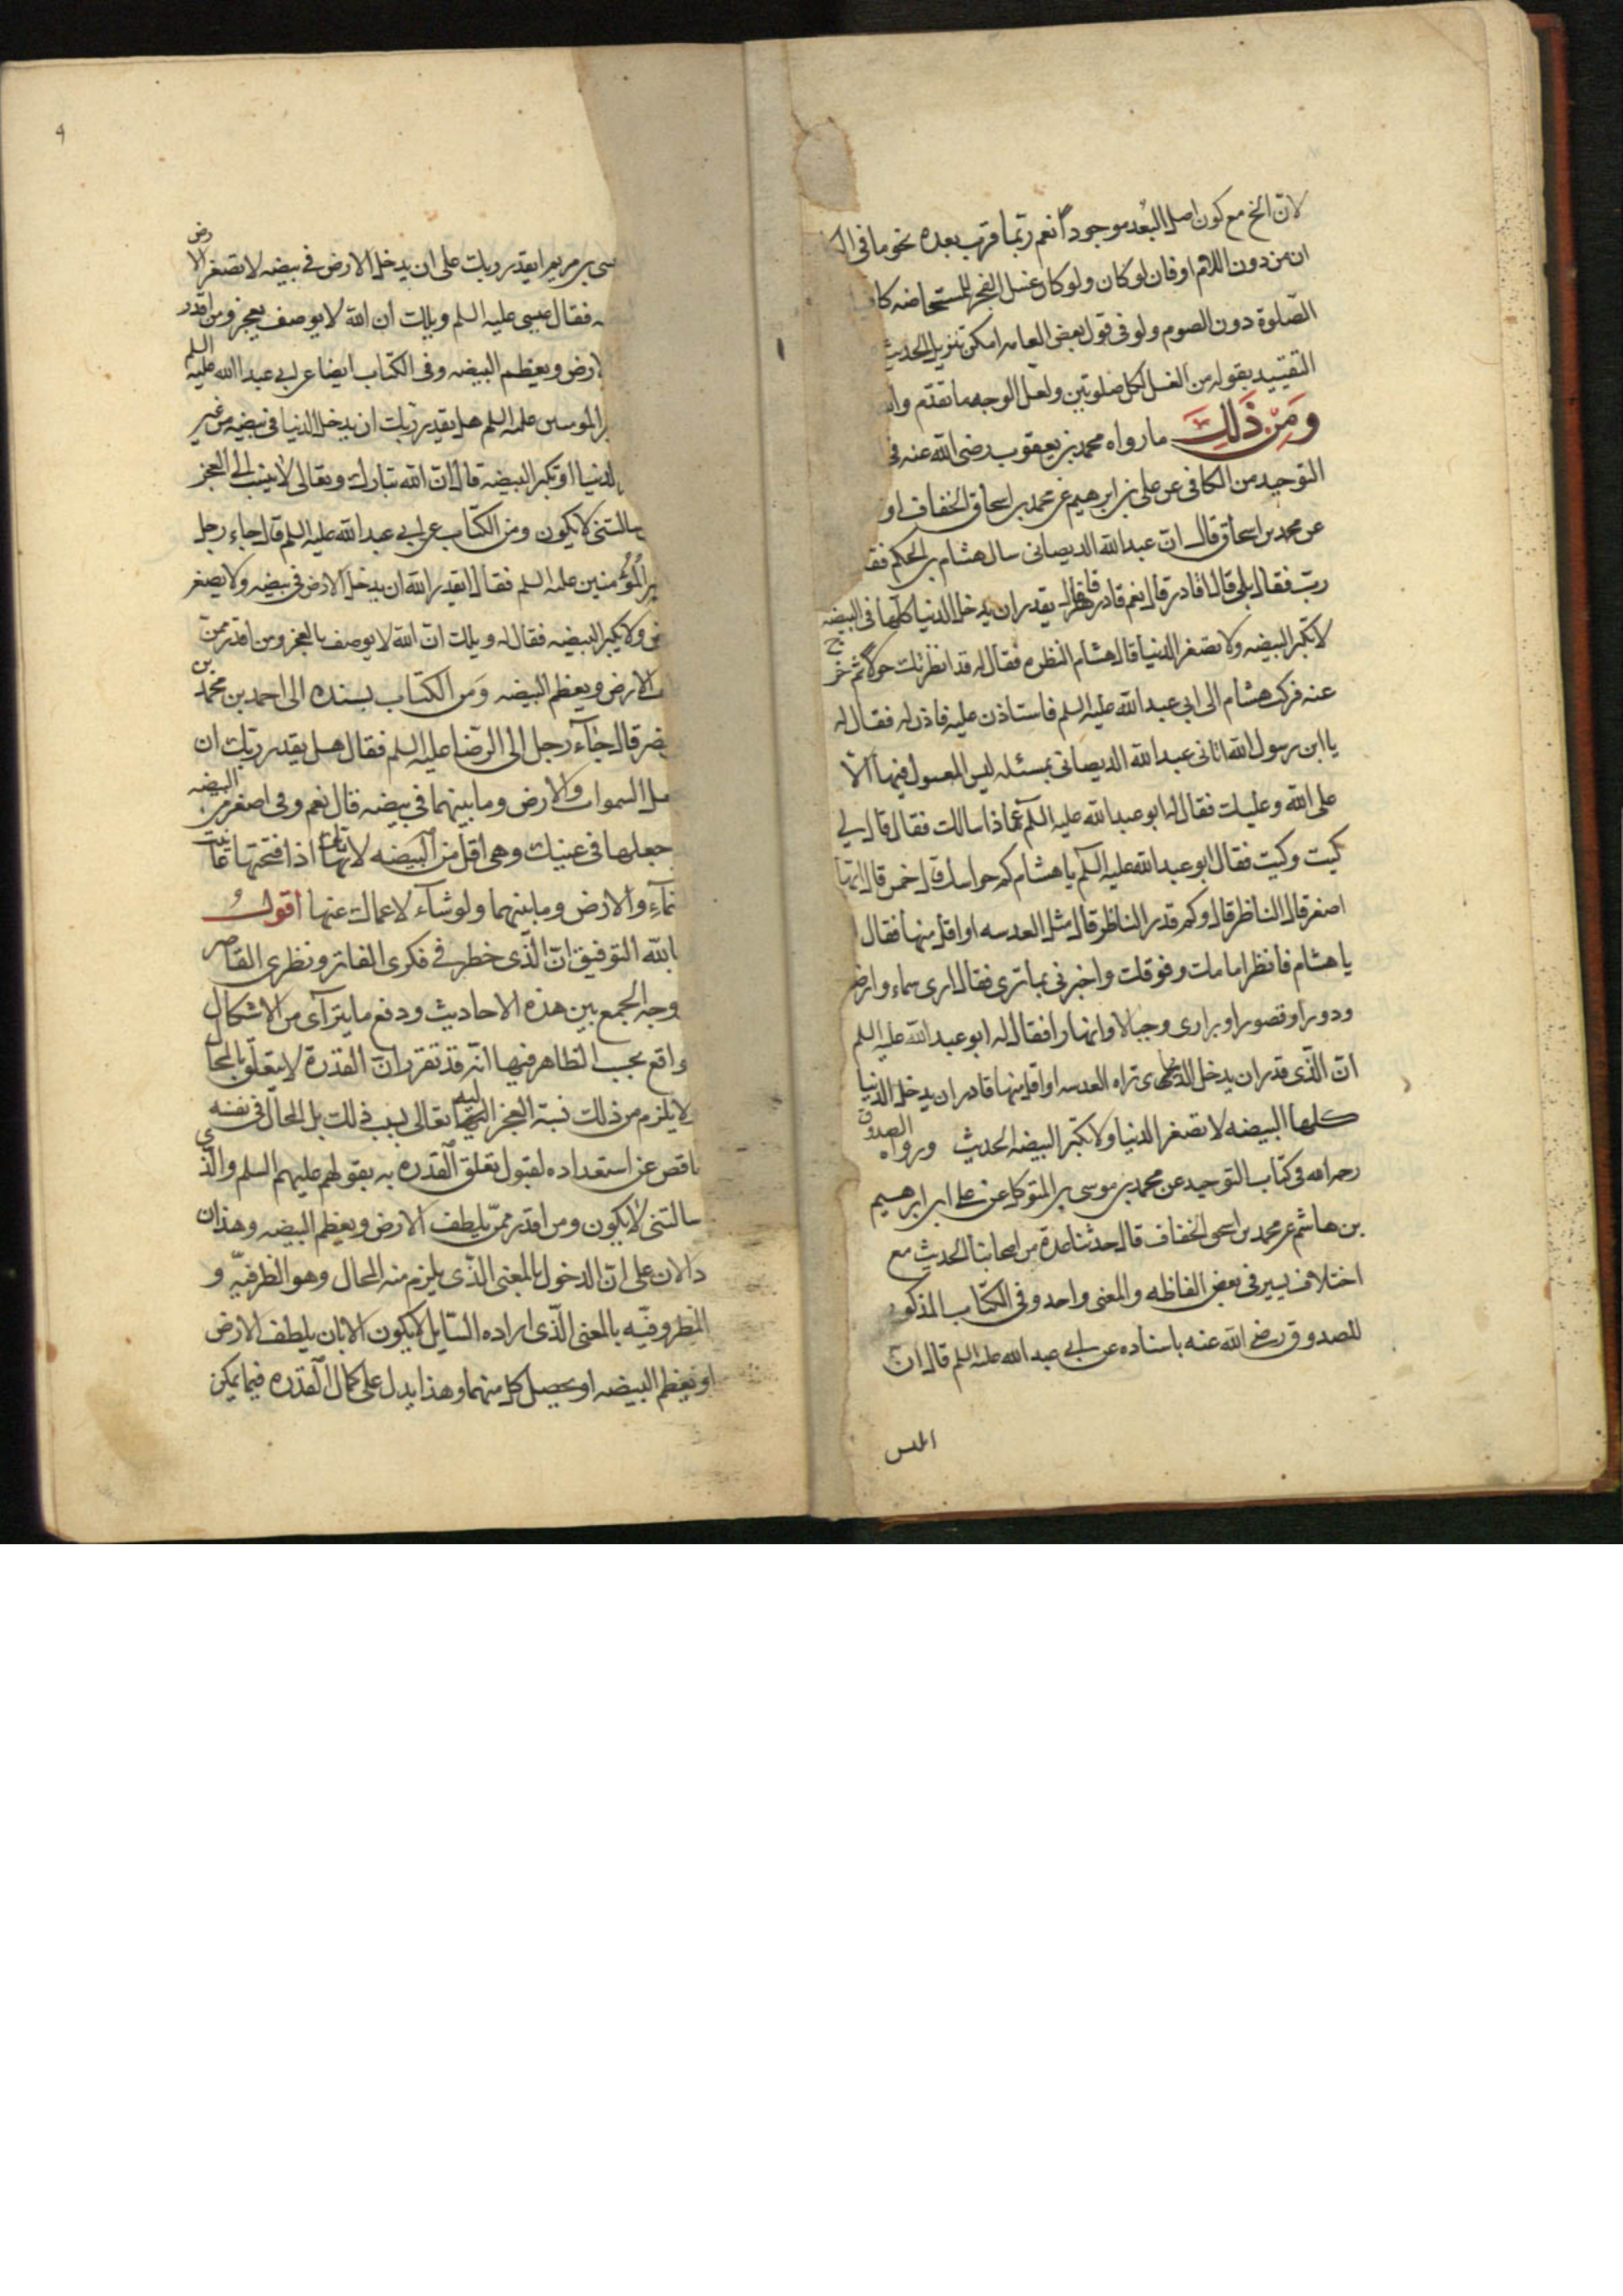 لان الخ مع كون اصل البُعد موجوداً نعم ربّما قرب بعده نحو ما فى
ان من دون اللام او فان لو كان ولو كان غسل الفجر للمستحاضه
الصّلوة دون الصوم ولو فى قول بعض العامه امكن تنزيل الحديث
التقييد بقوله من الغسل لكل صلوتين ولعل الوجه ما تقدّم
وَمِنْ ذَلِكَ ما رواه محمد بن يعقوب رضى الله عنه فى
التوحيد من الكافى عن على بن ابرهيم عن محمد بن اسحاق الخفاف او
عن محمد بن اسحاق قال انّ عبد الله الديصانى سال هشام بن الحكم فقا
ربّ فقال بلى قال اقادر قال نعم قادر قاهر قال يقدر ان يدخل الدنيا كلّها فى البيضه
لا تكبر البيضه ولا تصغر الدنيا قال هشام النظره فقال له قد انظرتك حولا ثم خرج
عنه فركب هشام الى ابى عبد الله عليه السلم فاستاذن عليه فاذن له فقال له
يا ابن رسول الله اتانى عبد الله الديصانى بمسئله ليس المعول فيها الّا
على الله وعليك فقال له ابو عبد الله عليه السلم عمّا ذا سالك فقال قال لى
كيت وكيت فقال ابو عبد الله عليه السلم يا هشام كم حواسك قال خمس قال ايّها
اصغر قال الناظر قال وكم قدر الناظر قال مثل العدسه او اقل منها فقال
يا هشام فانظر امامك وفوقك واخبرنى بما ترى فقال ارى سماء وارض
ودورا وقصورا وبرارى وجبالا وانهارا فقال له ابو عبد الله عليه السلم
انّ الّذى قدر ان يدخل الذى تراه العدسه او اقل منها قادر ان يدخل الدنيا
كلها البيضه لا تصغر الدنيا ولا تكبّر البيضه الحديث ورواه الصدوق
رحمه الله فى كتاب التوحيد عن محمد بن موسى بن المتوكل عن على ابن ابرهيم
بن هاشم عن محمد بن اسحق الخفاف قال حدثنا عدة من اصحابنا الحديث مع
اختلاف يسير فى بعض الفاظه والمعنى واحد وفى الكتاب المذكور
للصدوق رضى الله عنه باسناده عن ابى عبد الله عليه السلم قال ان
۹
بن مريم ايقدر ربك على ان يدخل الارض فى بيضه لا تصغر الارض
فقال عيسى عليه السلم ويلك ان الله لا يوصف بعجز ومن اقدر
الارض ويعظم البيضه وفى الكتاب ايضا عن ابى عبد الله عليه السلم
المومنين عليه السلم هل يقدر ربك ان يدخل الدنيا فى بيضه من غير
الدنيا او تكبر البيضه قال ان الله تبارك وتعالى لا ينسب الى العجز
سالتنى لا يكون ومن الكتاب عن ابى عبد الله عليه السلم قال جاء رجل
المُؤمنين عليه السلم فقال ايقدر الله ان يدخل الارض فى بيضه ولا يصغر
ولا يكبر البيضه فقال له ويلك انّ الله لا يوصف بالعجز ومن اقدر ممن
الارض ويعظم البيضه وَمن الكتاب بسنده الى احمد بن محمد بن
قال جآء رجل الى الرضا عليه السلم فقال هل يقدر ربّك ان
السموات والارض وما بينهما فى بيضه قال نعم وفى اصغر من البيضه
جعلها فى عينيك وهى اقل من البيضه لانها اذا فتحتها عاينت
والارض وما بينهما ولو شآء لاعماك عنها اقول
بالله التوفيق انّ الّذى خطر فى فكرى الفاتر ونظرى القاصر
وجه الجمع بين هذه الاحاديث ودفع ما يتراآى من الاشكال
واقع بحسب الظاهر فيها انّه قد تقرر انّ القدرة لا يتعلّق بالمحال
لا يلزم من ذلك نسبة العجز اليه تعالى بسبب ذلك بل المحال فى نفسه
ناقص عن استعداده لقبول تعلق القدره به بقولهم عليهم السلم والّذى
سالتنى لا يكون ومن اقدر ممّن يلطف الارض ويعظم البيضه وهذان
دالان على انّ الدخول بالمعنى الذّى يلزم منه المحال وهو الظرفيّه و
المظروفيّه بالمعنى الذّى اراده السّايل لا يكون الا بان يلطف الارض
او يعظم البيضه او يحصل كل منهما وهذا يدل على كمال القدره فيما يمكن